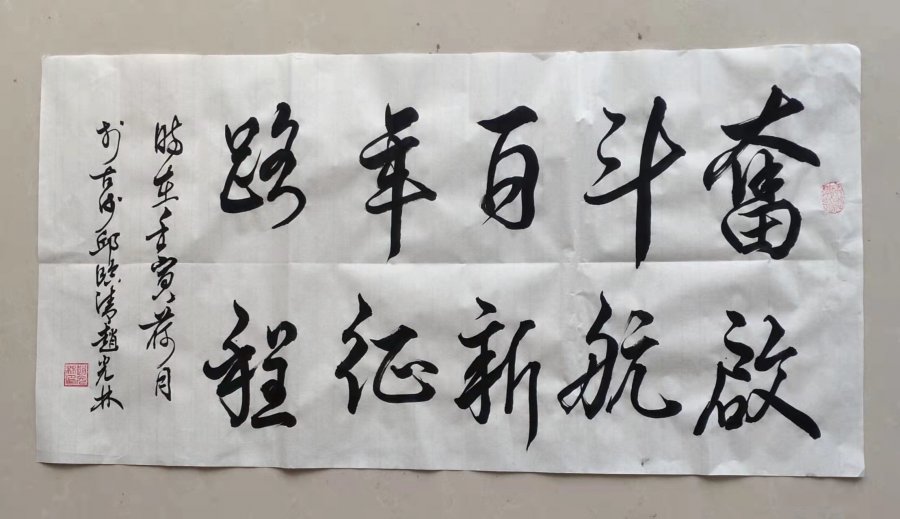 奮斗百年路
啟航新征程
時在壬寅荷月
於古沙邱臨清趙光林